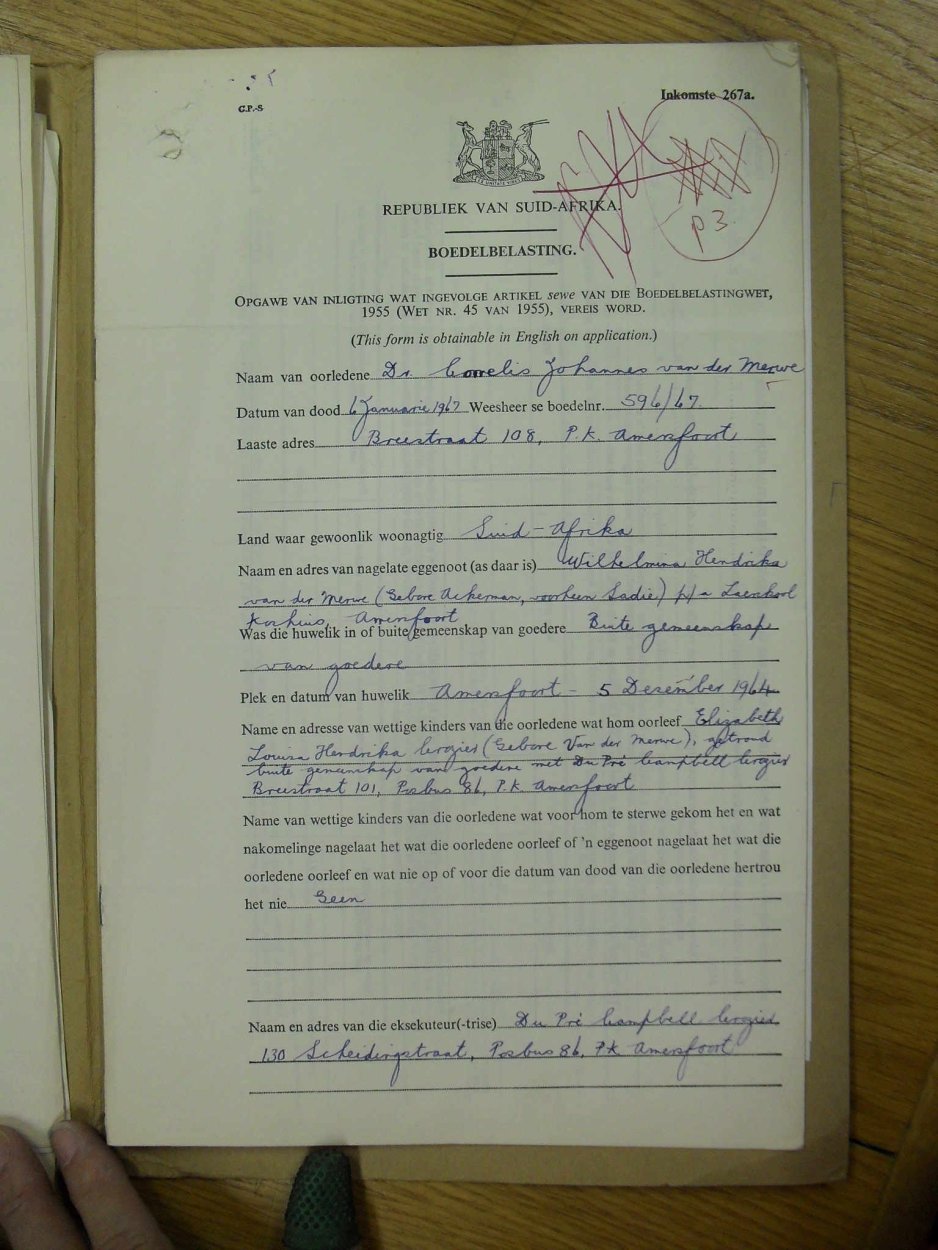 G.P.-S
Inkomste 267a.
p3.
REPUBLIEK VAN SUID-AFRIKA.
BOEDELBELASTING.
OPGAWE VAN INLIGTING WAT INGEVOLGE ARTIKEL sewe VAN DIE BOEDELBELASTINGWET,
1955 (WET NR. 45 VAN 1955), VEREIS WORD.
(This form is obtainable in English on application.)
Naam van oorledene Dr. Cornelis Johannes van der Merwe
Datum van dood 6 Januarie 1967 Weesheer se boedelnr. 596/67
Laaste adres Breestraat 108, P.K. Amersfoort
Land waar gewoonlik woonagtig Suid-Afrika
Naam en adres van nagelate eggenoot (as daar is) Wilhelmina Hendrika
van der Merwe (Gebore Ackerman, voorheen Sadie) p/a Laerskool
Koshuis, Amersfoort
Was die huwelik in of buite gemeenskap van goedere Buite gemeenskap
van goedere
Plek en datum van huwelik Amersfoort - 5 Desember 1964
Name en adresse van wettige kinders van die oorledene wat hom oorleef Elizabeth
Louisa Hendrika (Gebore Van der Merwe), getroud
buite gemeenskap van goedere met Du Pré Campbell
Breestraat 101, Posbus 86, P.K. Amersfoort
Name van wettige kinders van die oorledene wat voor hom te sterwe gekom het en wat
nakomelinge nagelaat het wat die oorledene oorleef of 'n eggenoot nagelaat het wat die
oorledene oorleef en wat nie op of voor die datum van dood van die oorledene hertrou
het nie Geen
Naam en adres van die eksekuteur(-trise) Du Pré Campbell
130 Scheidingstraat, Posbus 86, P.K. Amersfoort